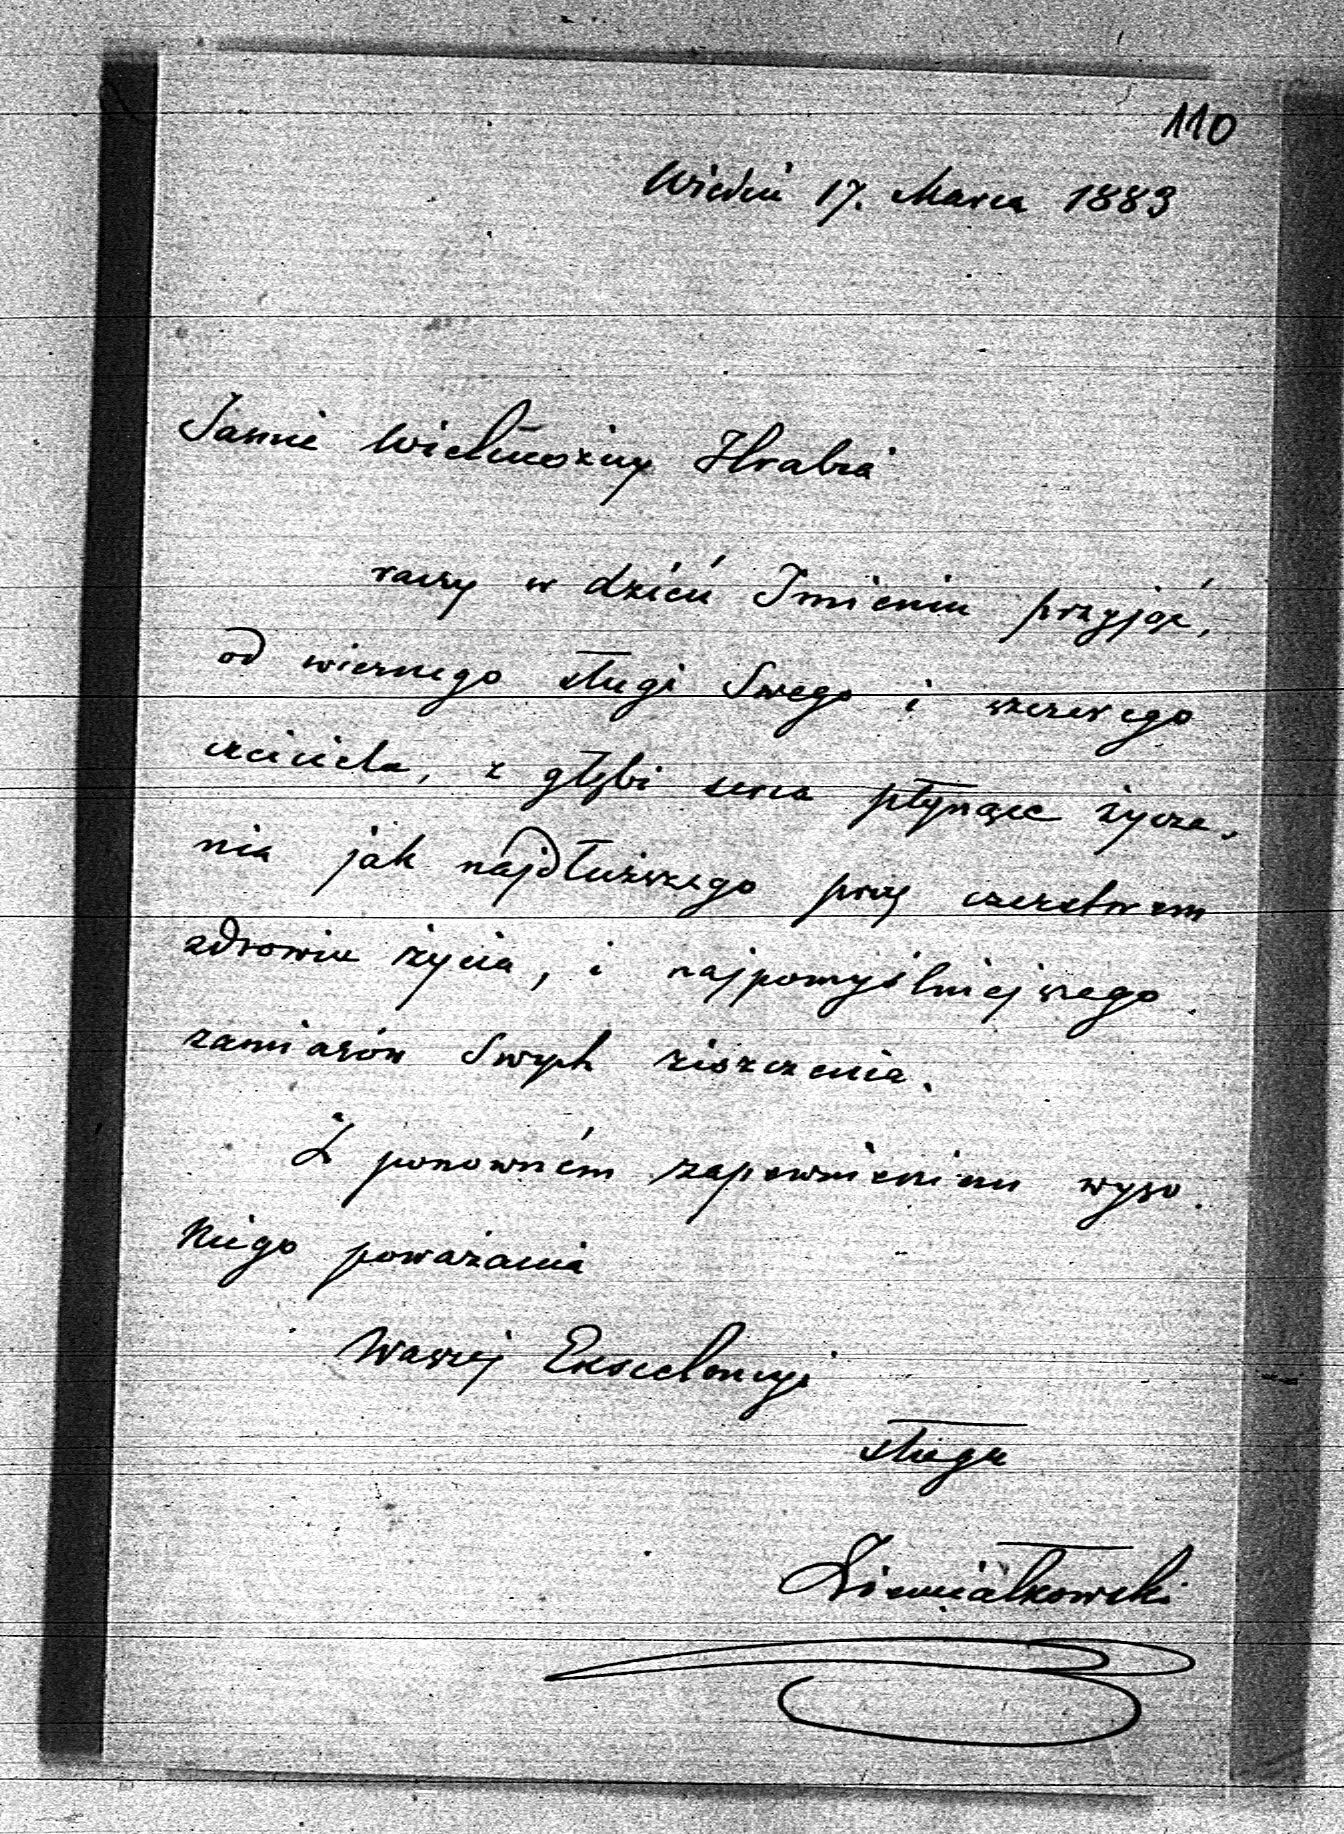 110
Wiedeń 17. Marca 1883
Jaśnie Wielmożny Hrabia
raczy w dzień Imienin przyjąć,
od wiernego sługi Swego i szczerego
czciciela, z głębi serca płynące życze-
nia jak najdłuższego przy czerstwem
zdrowiu życia, i najpomyślniejszego
zamiarów Swych ziszczenia.
Z ponowném zapewnieniem wyso-
kiego poważania
Waszej Ekscelencyi
sługa
Ziemiałkowski